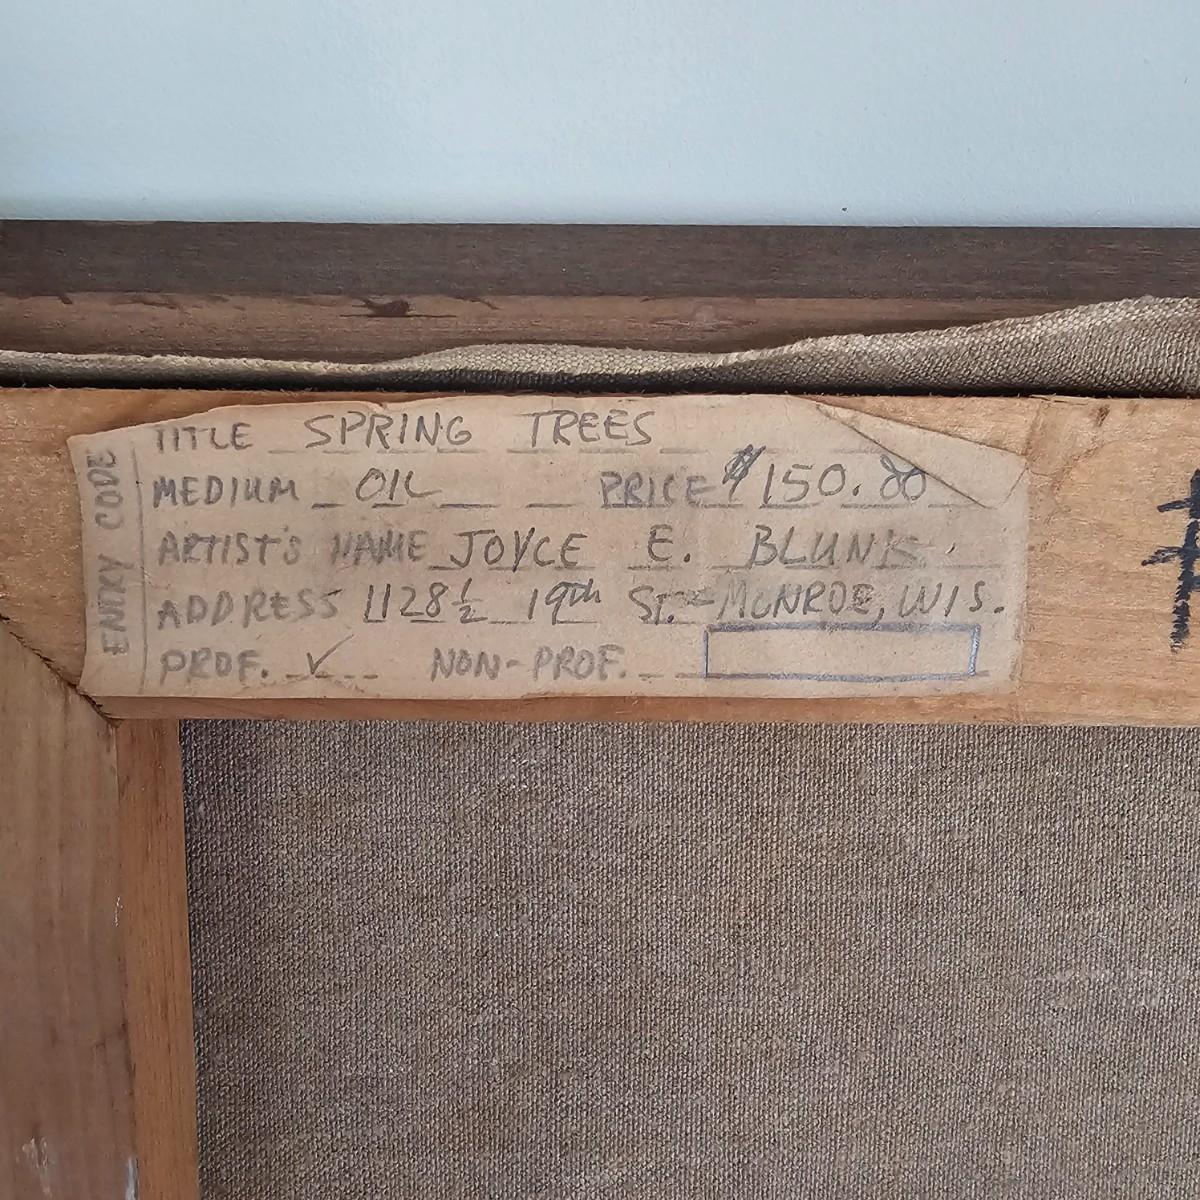 ENTRY CODE
TITLE SPRING TREES
MEDIUM OIL PRICE $150.00
ARTIST'S NAME JOYCE E. BLUNK
ADDRESS 1128½ 19th St. - MONROE, WIS.
PROF. ✓ NON-PROF.